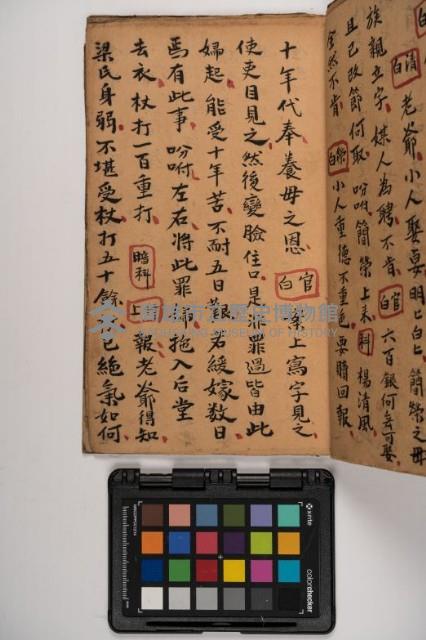 白清
老爺小人娶要明乜白乜簡榮之母
族親立字媒人為聘不肯官白六百銀何無可娶
且已改節何取吩咐簡榮上來科楊清風
全然不肯榮白小人重德不重色要時回報
十年代奉養母之恩官白案上寫字見之
使吏目見之然後變臉住口是罪罪過皆由此
婦起能受十年苦不耐五日若緩嫁數日
焉有此事吩咐左右將此罪拖入后堂
去衣杖打一百重打暗科上報老爺得知
梁氏身弱不堪受杖打五十餘已絕氣如何
高雄市立歷史博物館
KAOHSIUNG MUSEUM OF HISTORY
x-rite
colorchecker